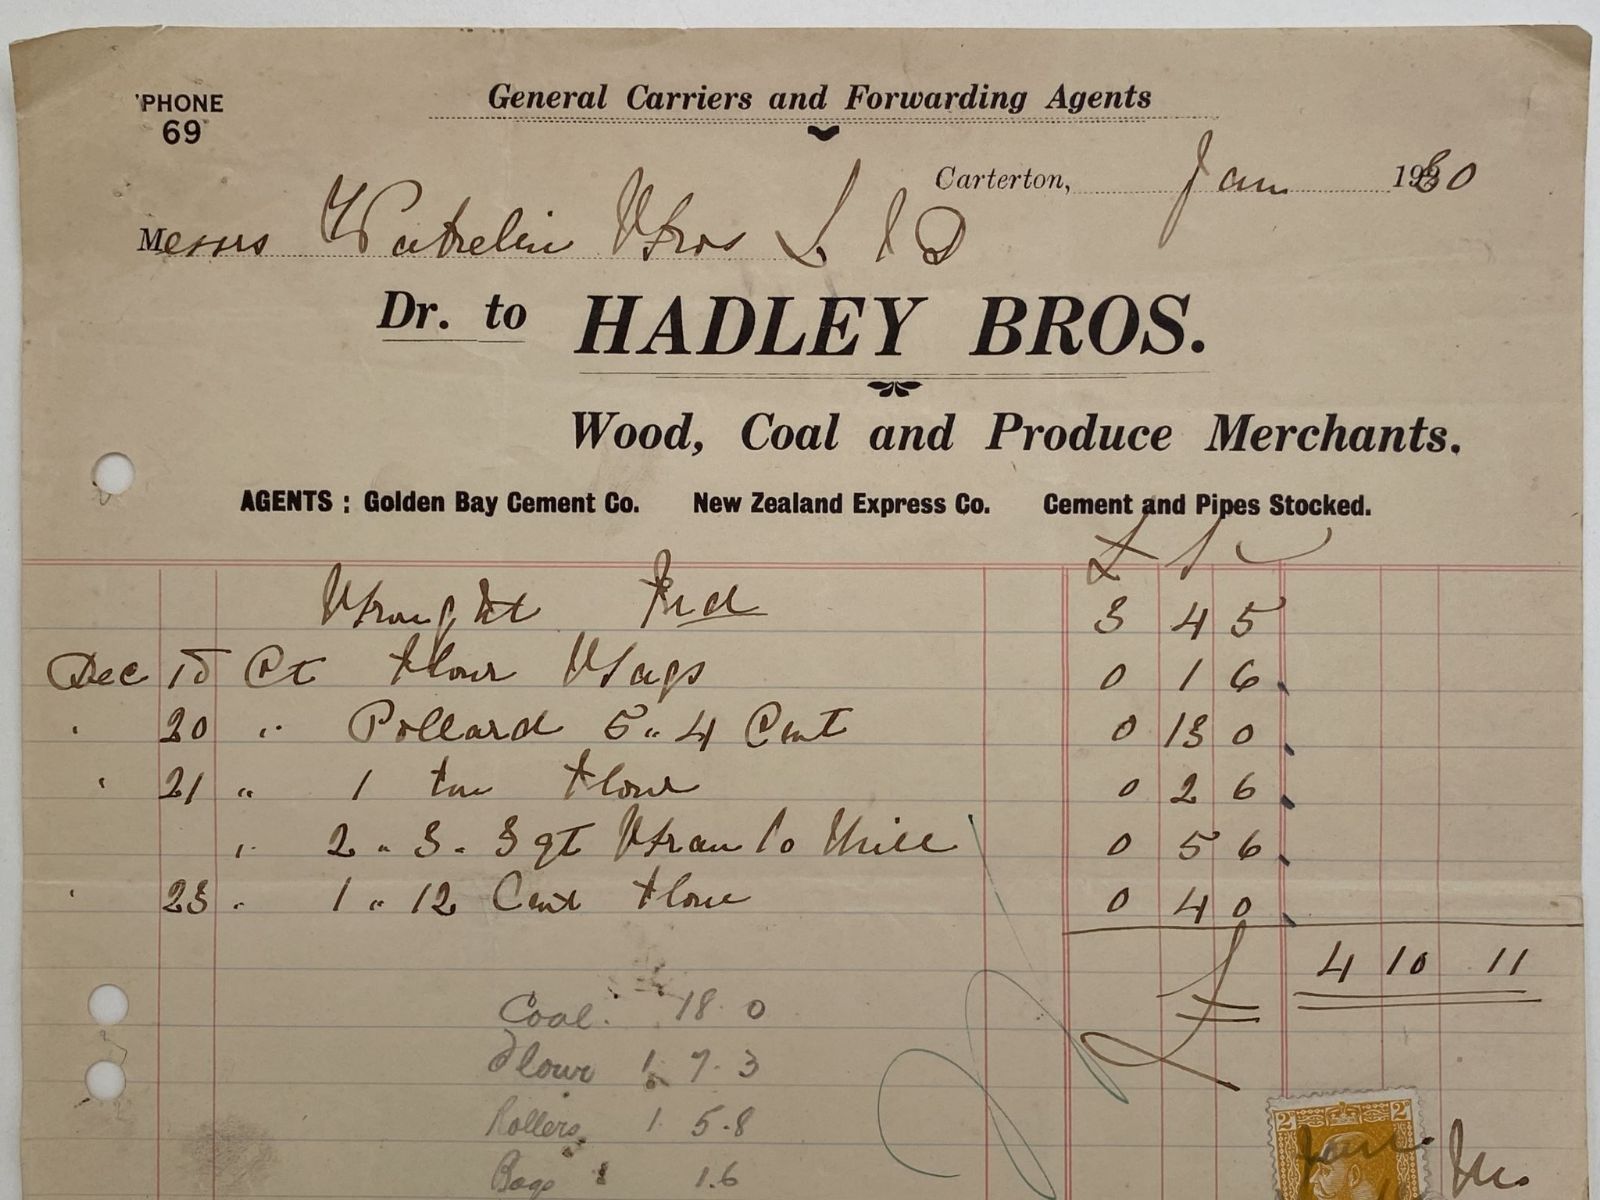 'PHONE
69
General Carriers and Forwarding Agents
Carterton, Jan 1930
Messrs Bros LTD
Dr. to HADLEY BROS.
Wood, Coal and Produce Merchants.
AGENTS : Golden Bay Cement Co. New Zealand Express Co. Cement and Pipes Stocked.
£ s d
Brought Fwd 3 4 5
Dec 15 Ct Flour Bags 0 1 6
" 20 " Pollard 5 " 4 Cwt 0 13 0
" 21 " 1 ton Flour 0 2 6
" 2 " 3 " 3 qt Bran to Mill 0 5 6
" 23 " 1 " 12 Cwt Flour 0 4 0
£ 4 10 11
Coal. 18. 0
Flour 1. 7. 3
Rollers 1. 5.8
Bags 1.6
2D 2D
Jan